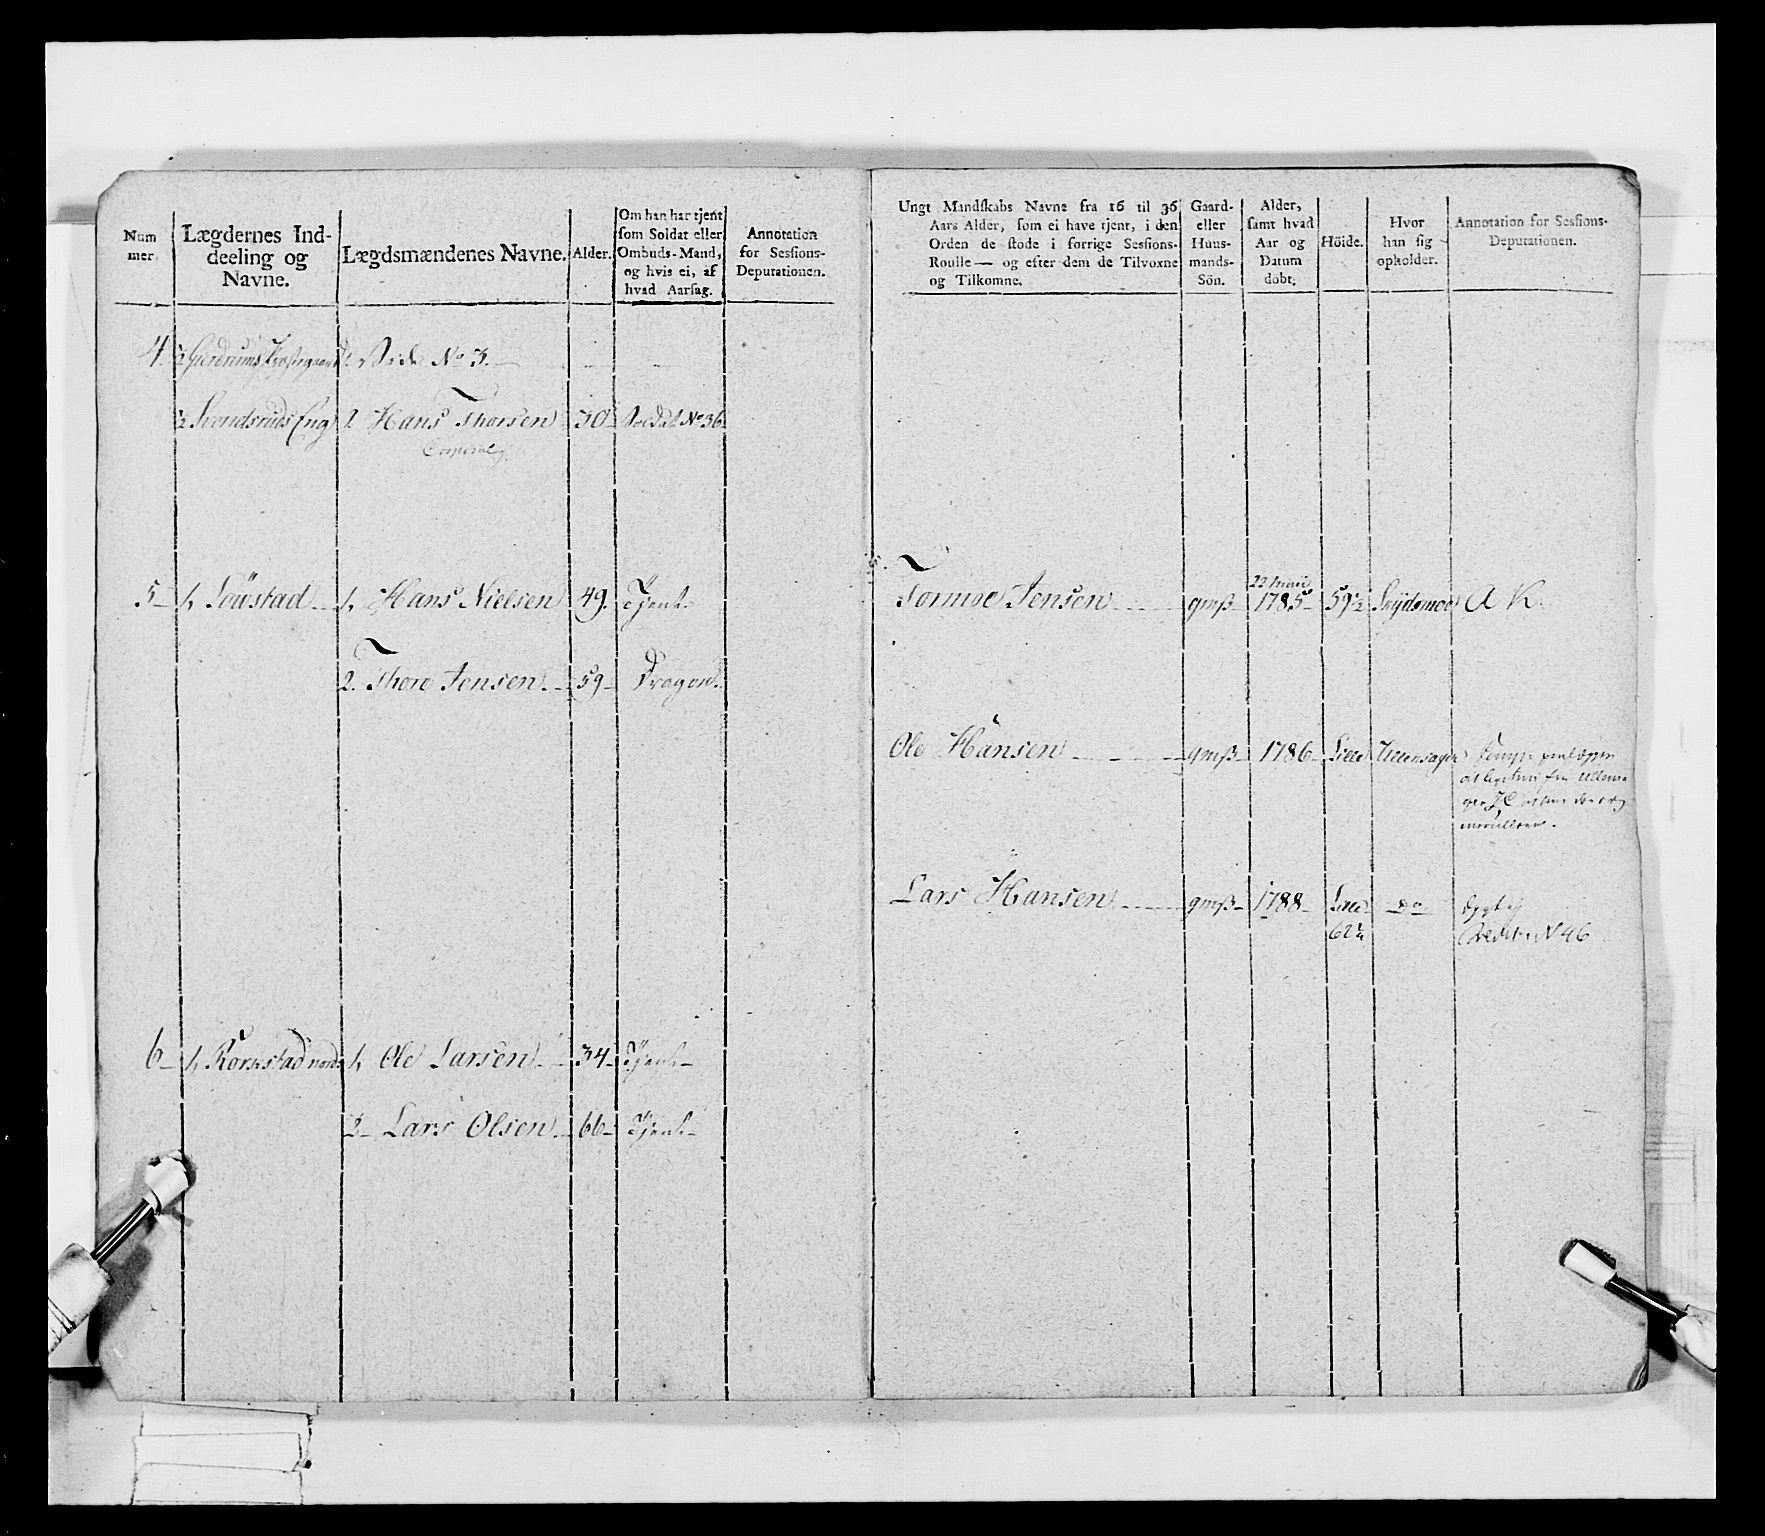 Num
mer.
Lægdernes Ind-
deeling og
Navne.
Lægdsmændenes Navne.
Alder.
Om han har tjent
som Soldat eller
Ombuds-Mand,
og hvis ei, af
hvad Aarsag.
Annotation
for Sessions-
Deputationen.
4. ½ Gierdrums Præstegaard 1. Vide No 3.
½ Svendsruds Eng 2. Hans Thorsen 30 Soldat No 36
Corporal
5 1, Löwstad 1, Hans Nielsen 49. Tjent
2. Thore Jensen 59 Dragon
6 1, Rörstad nord 1, Ole Larsen 34 Tjent
2 Lars Olsen 66 Tjent
Ungt Mandskabs Navne fra 16 til 36
Aars Alder, som ei have tjent, i den
Orden de stode i forrige Sessions-
Roulle — og efter dem de Tilvoxne
og Tilkomne.
Gaard-
eller
Huus-
mands-
Sön.
Alder,
samt hvad
Aar og
Datum
döbt.
Höide.
Hvor
han sig
opholder.
Annotation for Sessions-
Deputationen.
5.
22 Maii
Tormoe Jensen gmß 1785 59½ A K
Ole Hansen gmß 1786 Lille Ullensager
Lars Hansen gmß 1788 Lille Do
62¼ No 46